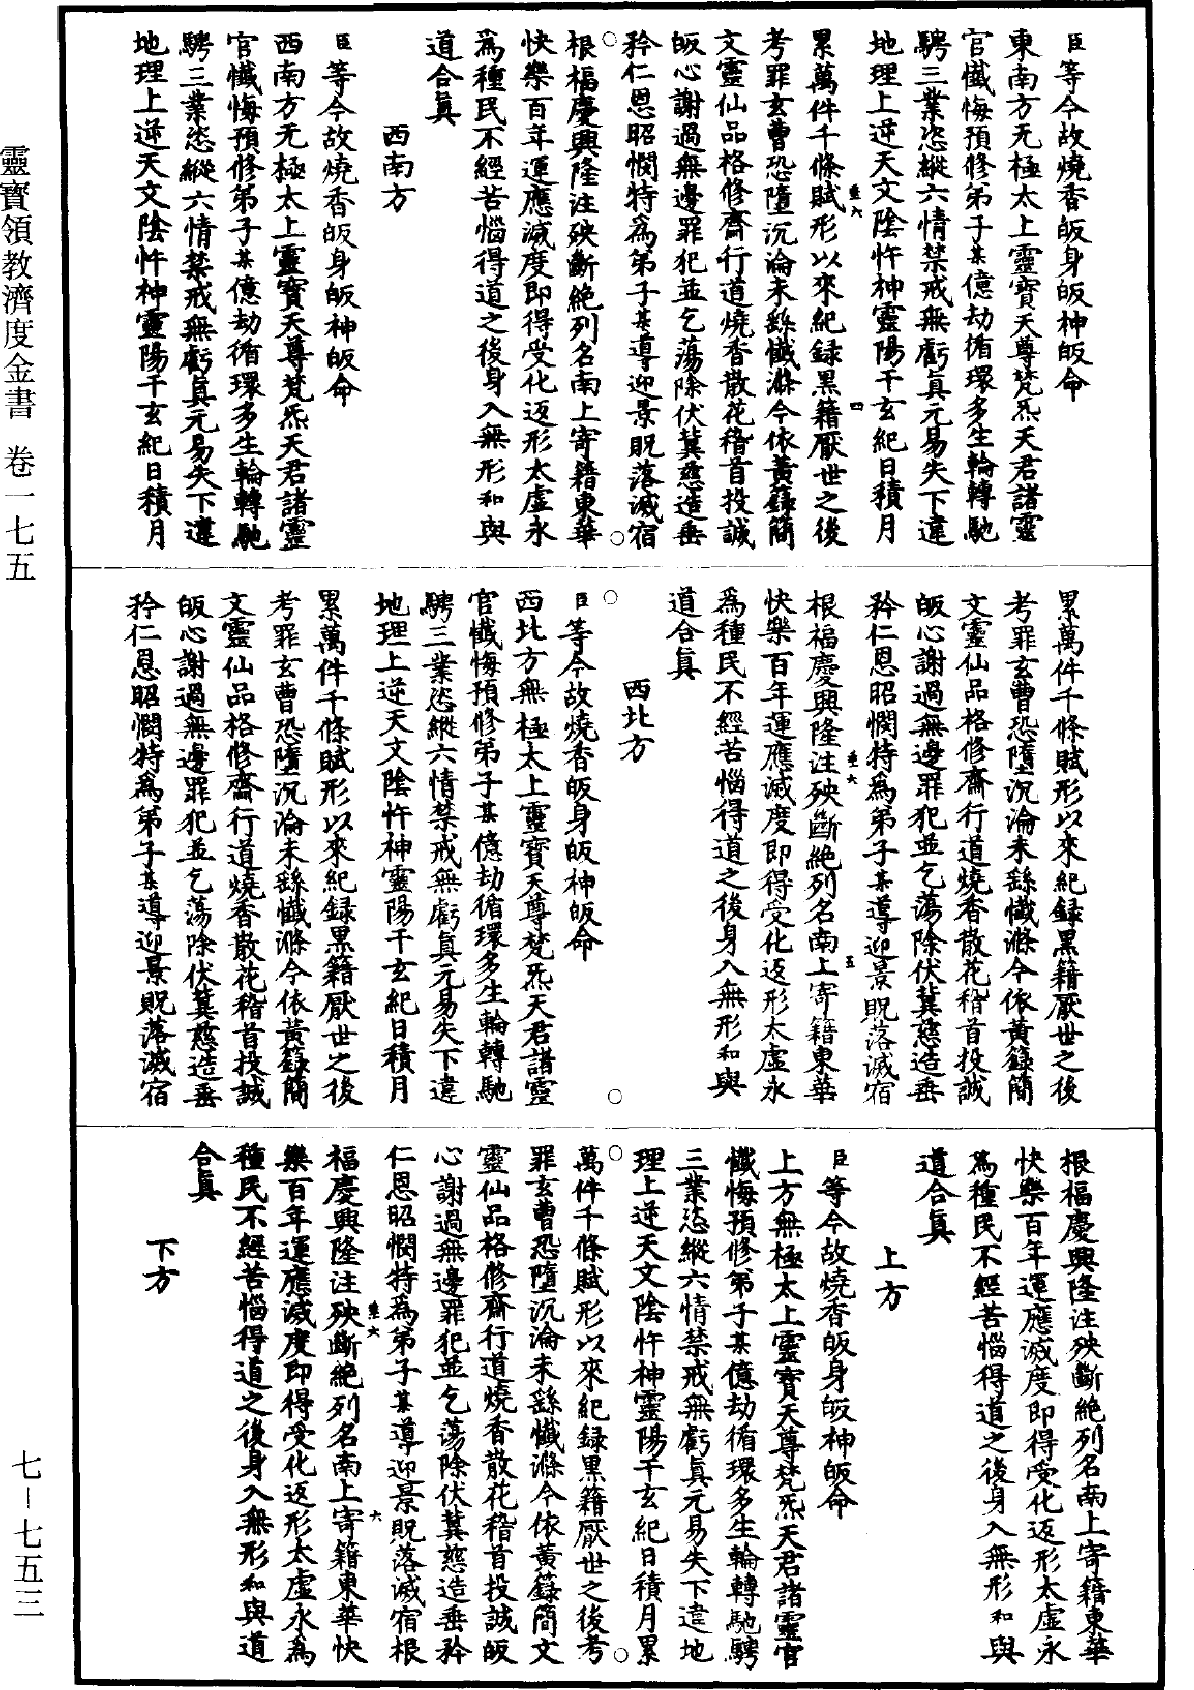 臣等今故燒香皈身皈神皈命
東南方无極太上靈寶天尊梵炁天君諸靈
官懺悔預修弟子某億劫循環多生輪轉馳
騁三業恣縱六情禁戒無虧真元易失下違
地理上逆天文陰忤神靈陽干玄紀日積月
累萬件千條賦形以來紀録黑籍厭世之後
考罪玄曹恐墮沉淪未繇懺滌今依黃籙簡
文靈仙品格修齋行道燒香散花稽首投誠
皈心謝過無邊罪犯並乞蕩除伏冀慈造垂
矜仁恩昭憫特為弟子某導迎景貺落滅宿
根福慶興隆注殃斷絕列名南上寄籍東華
快樂百年運應滅度即得受化返形太虛永
為種民不經苦惱得道之後身入無形和與
道合真
西南方
臣等今故燒香皈身皈神皈命
西南方无極太上靈寶天尊梵炁天君諸靈
官懺悔預修弟子某億劫循環多生輪轉馳
騁三業恣縱六情禁戒無虧真元易失下違
地理上逆天文陰忤神靈陽干玄紀日積月
累萬件千條賦形以來紀録黑籍厭世之後
考罪玄曹恐墮沉淪未繇懺滌今依黃籙簡
文靈仙品格修齋行道燒香散花稽首投誠
皈心謝過無邊罪犯並乞蕩除伏冀慈造垂
矜仁恩昭憫特為弟子某導迎景貺落滅宿
根福慶興隆注殃斷絕列名南上寄籍東華
快樂百年運應滅度即得受化返形太虛永
為種民不經苦惱得道之後身入無形和與
道合真
西北方
臣等今故燒香皈身皈神皈命
西北方無極太上靈寶天尊梵炁天君諸靈
官懺悔預修弟子某億劫循環多生輪轉馳
騁三業恣縱六情禁戒無虧真元易失下違
地理上逆天文陰忤神靈陽干玄紀日積月
累萬件千條賦形以來紀録黑籍厭世之後
考罪玄曹恐墮沉淪未繇懺滌今依黃籙簡
文靈仙品格修齋行道燒香散花稽首投誠
皈心謝過無邊罪犯並乞蕩除伏冀慈造垂
矜仁恩昭憫特為弟子某導迎景貺落滅宿
根福慶興隆注殃斷絕列名南上寄籍東華
快樂百年運應滅度即得受化返形太虛永
為種民不經苦惱得道之後身入無形和與
道合真
上方
臣等今故燒香皈身皈神皈命
上方無極太上靈寶天尊梵炁天君諸靈官
懺悔預修弟子某億劫循環多生輪轉馳騁
三業恣縱六情禁戒無虧真元易失下違地
理上逆天文陰忤神靈陽干玄紀日積月累
萬件千條賦形以來紀録黑籍厭世之後考
罪玄曹恐墮沉淪未繇懺滌今依黃籙簡文
靈仙品格修齋行道燒香散花稽首投誠皈
心謝過無邊罪犯並乞蕩除伏冀慈造垂矜
仁恩昭憫特為弟子某導迎景貺落滅宿根
福慶興隆注殃斷絕列名南上寄籍東華快
樂百年運應滅度即得受化返形太虛永為
種民不經苦惱得道之後身入無形和與道
合真
下方
靈寶領教濟度金書 卷一七五
七—七五三